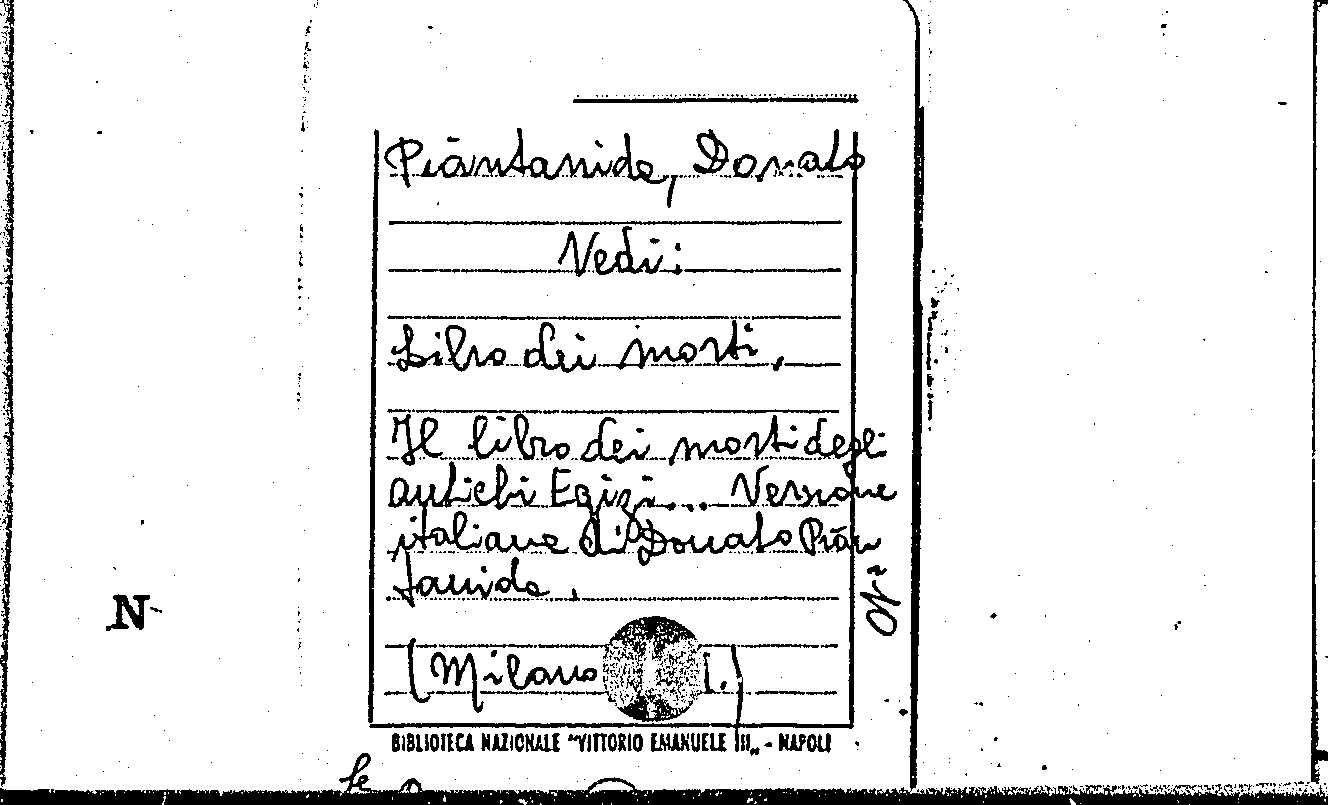 Piantanida, Donato
Vedi:
Libro dei morti.
Il libro dei morti degli
antichi Egizi... Versione
italiana di Donato Pian
tanida.
(Milano
BIBLIOTECA NAZIONALE "VITTORIO EMANUELE III" - NAPOLI
N